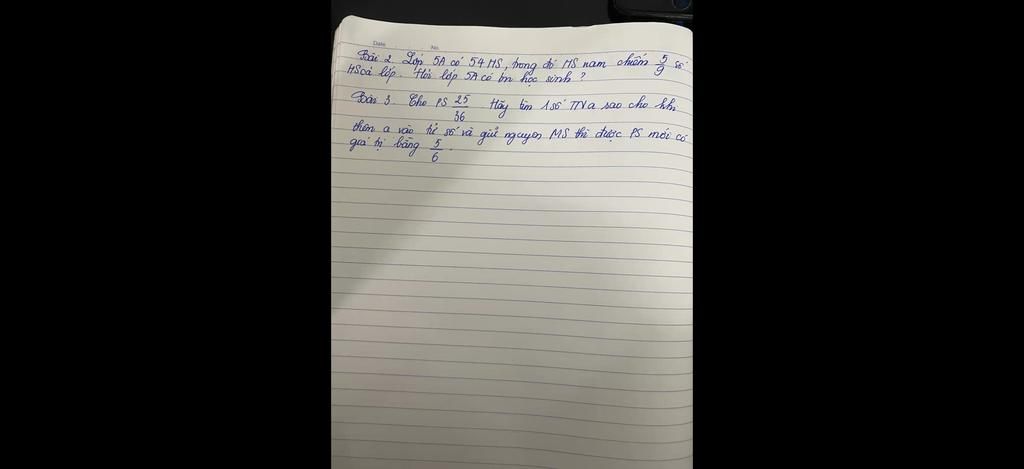 Date No.
Bài 2. Lớp 5A có 54 HS, trong đó HS nam chiếm 5/9 số
HS cả lớp. Hỏi lớp 5A có bn học sinh ?
Bài 3. Cho PS 25/36. Hãy tìm 1 số TN a sao cho khi
thêm a vào tử số và giữ nguyên MS thì được PS mới có
giá trị bằng 5/6.